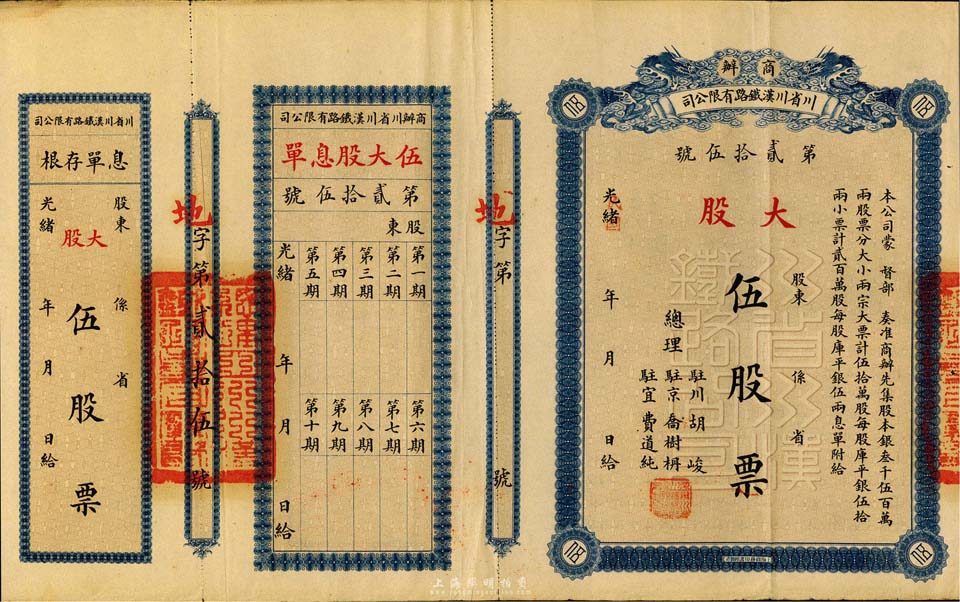 商辦
川省川漢鐵路有限公司
第貳拾伍號
大股
本公司蒙 督部 奏准商辦先集股本銀叁千伍百萬
兩股票分大小兩宗大票計伍拾萬股每股庫平銀伍拾
兩小票計貳百萬股每股庫平銀伍兩息單附給
股東 係 省
伍股票
總理
駐川胡峻
駐京喬樹枏
駐宜費道純
光緒 年 月 日給
川省川漢
鐵路公司
地字第 號
商辦川省川漢鐵路有限公司
伍大股息單
第貳拾伍號
股東
第一期 第六期
第二期 第七期
第三期 第八期
第四期 第九期
第五期 第十期
光緒 年 月 日給
地字第貳拾伍號
川省川漢鐵路有限公司
息單存根
股東 係 省
大股
伍股票
光緒 年 月 日給
上海陽明拍賣